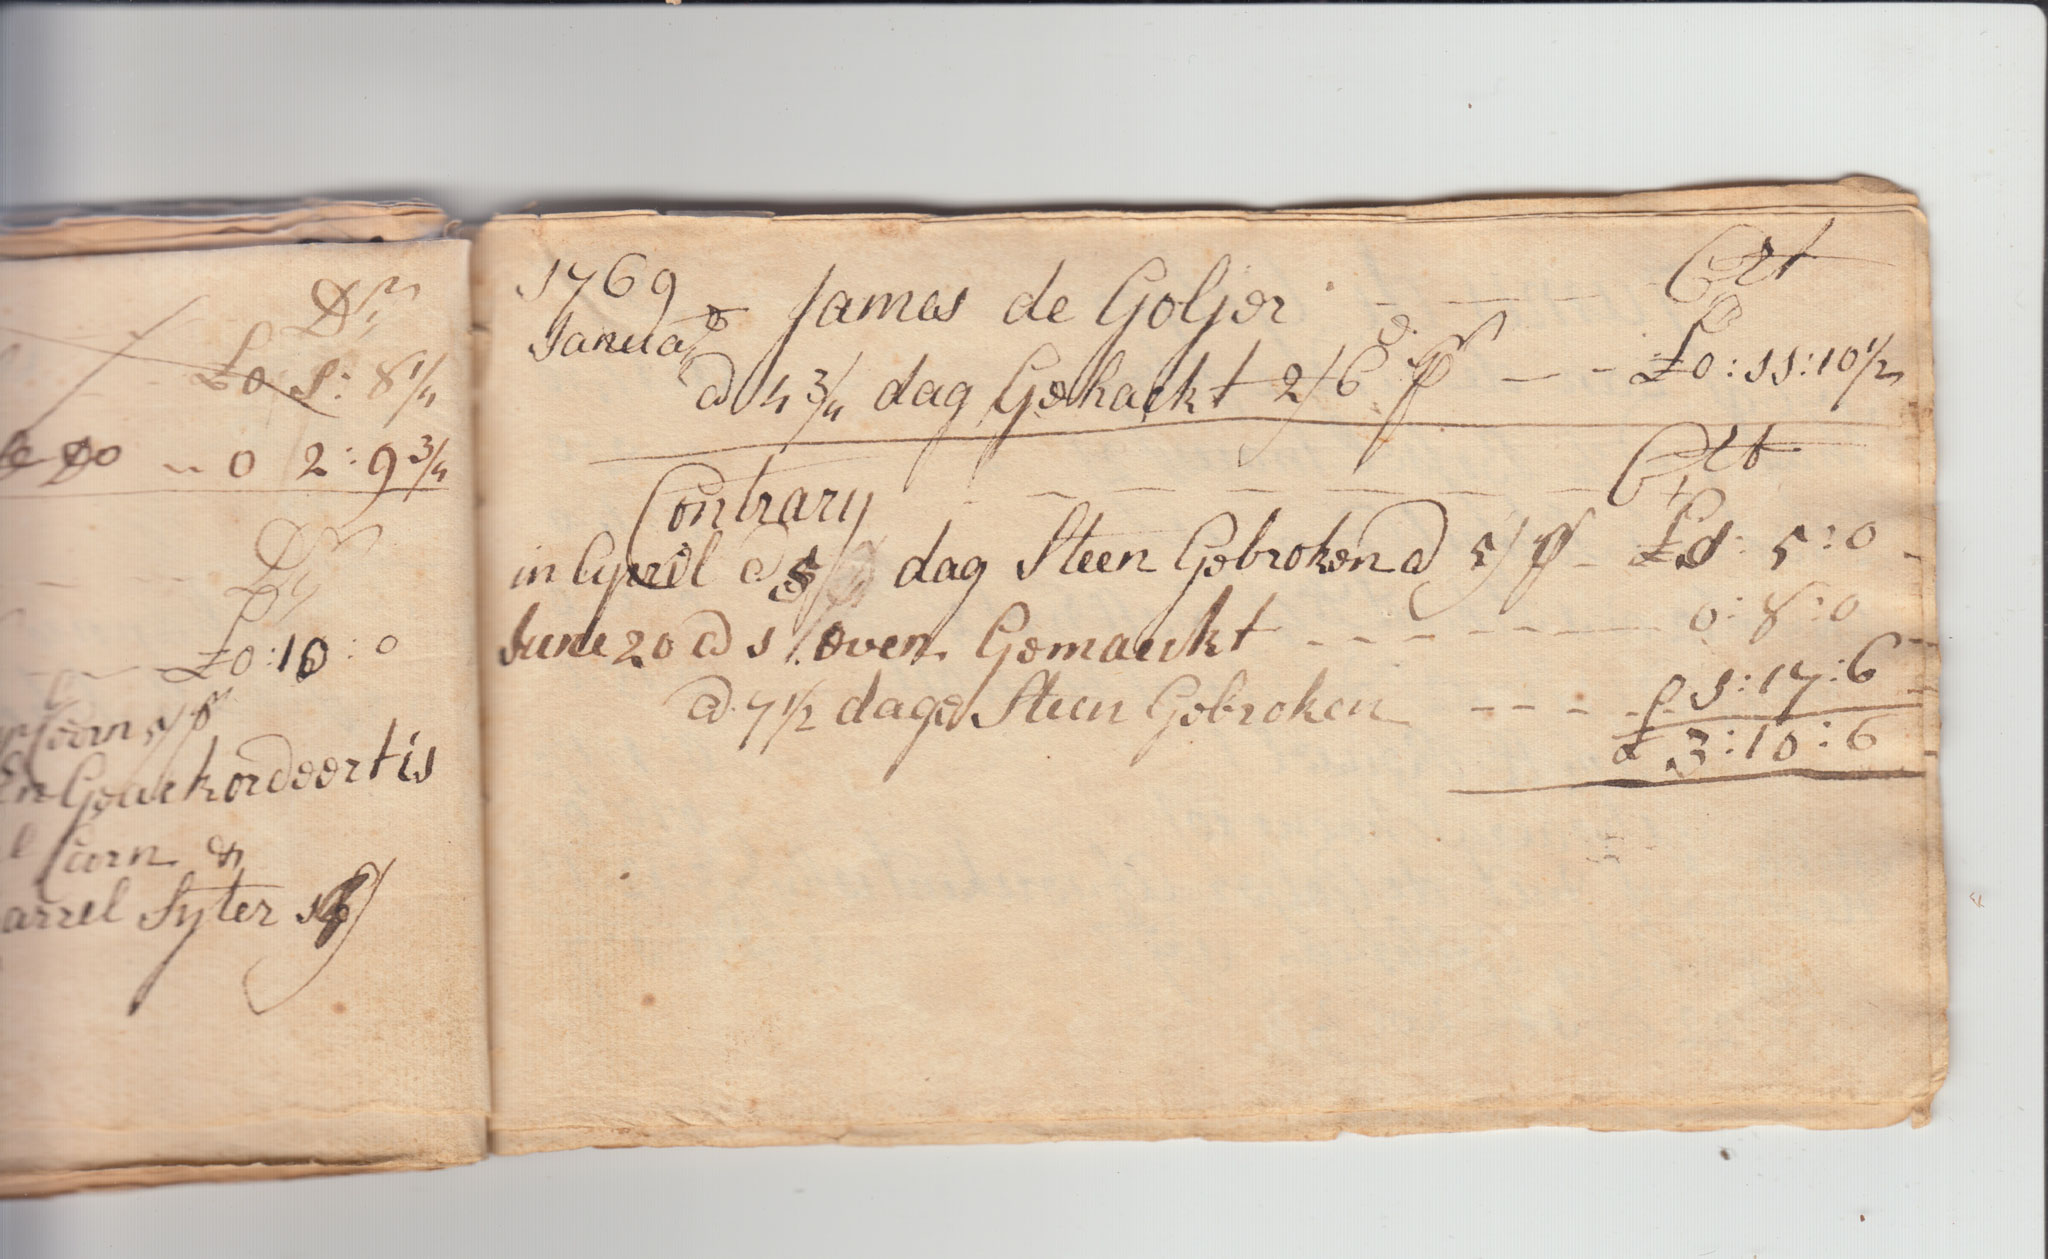 Dr
£0 1: 8 1/4
do -- 0 2: 9 3/4
Dr
£0: 10: 0
Coorn 5/ pr
En Geackordeert is
Coorn &
arrel Syter
1769 James de Goljer - - - - Crt
Janua
@ 4 3/4 dag Gehackt 2/6 pr - - - £0: 11: 10 1/2
Contrary - - - - - - - Crt
in Apriel @ 5 dag Steen Gebroken @ 5/ pr - £1: 5: 0
June 20 @ 1 oven Gemaeckt - - - - - - 0: 8: 0
@ 7 1/2 dage Steen Gebroken - - - - 1: 17: 6
£ 3: 10: 6